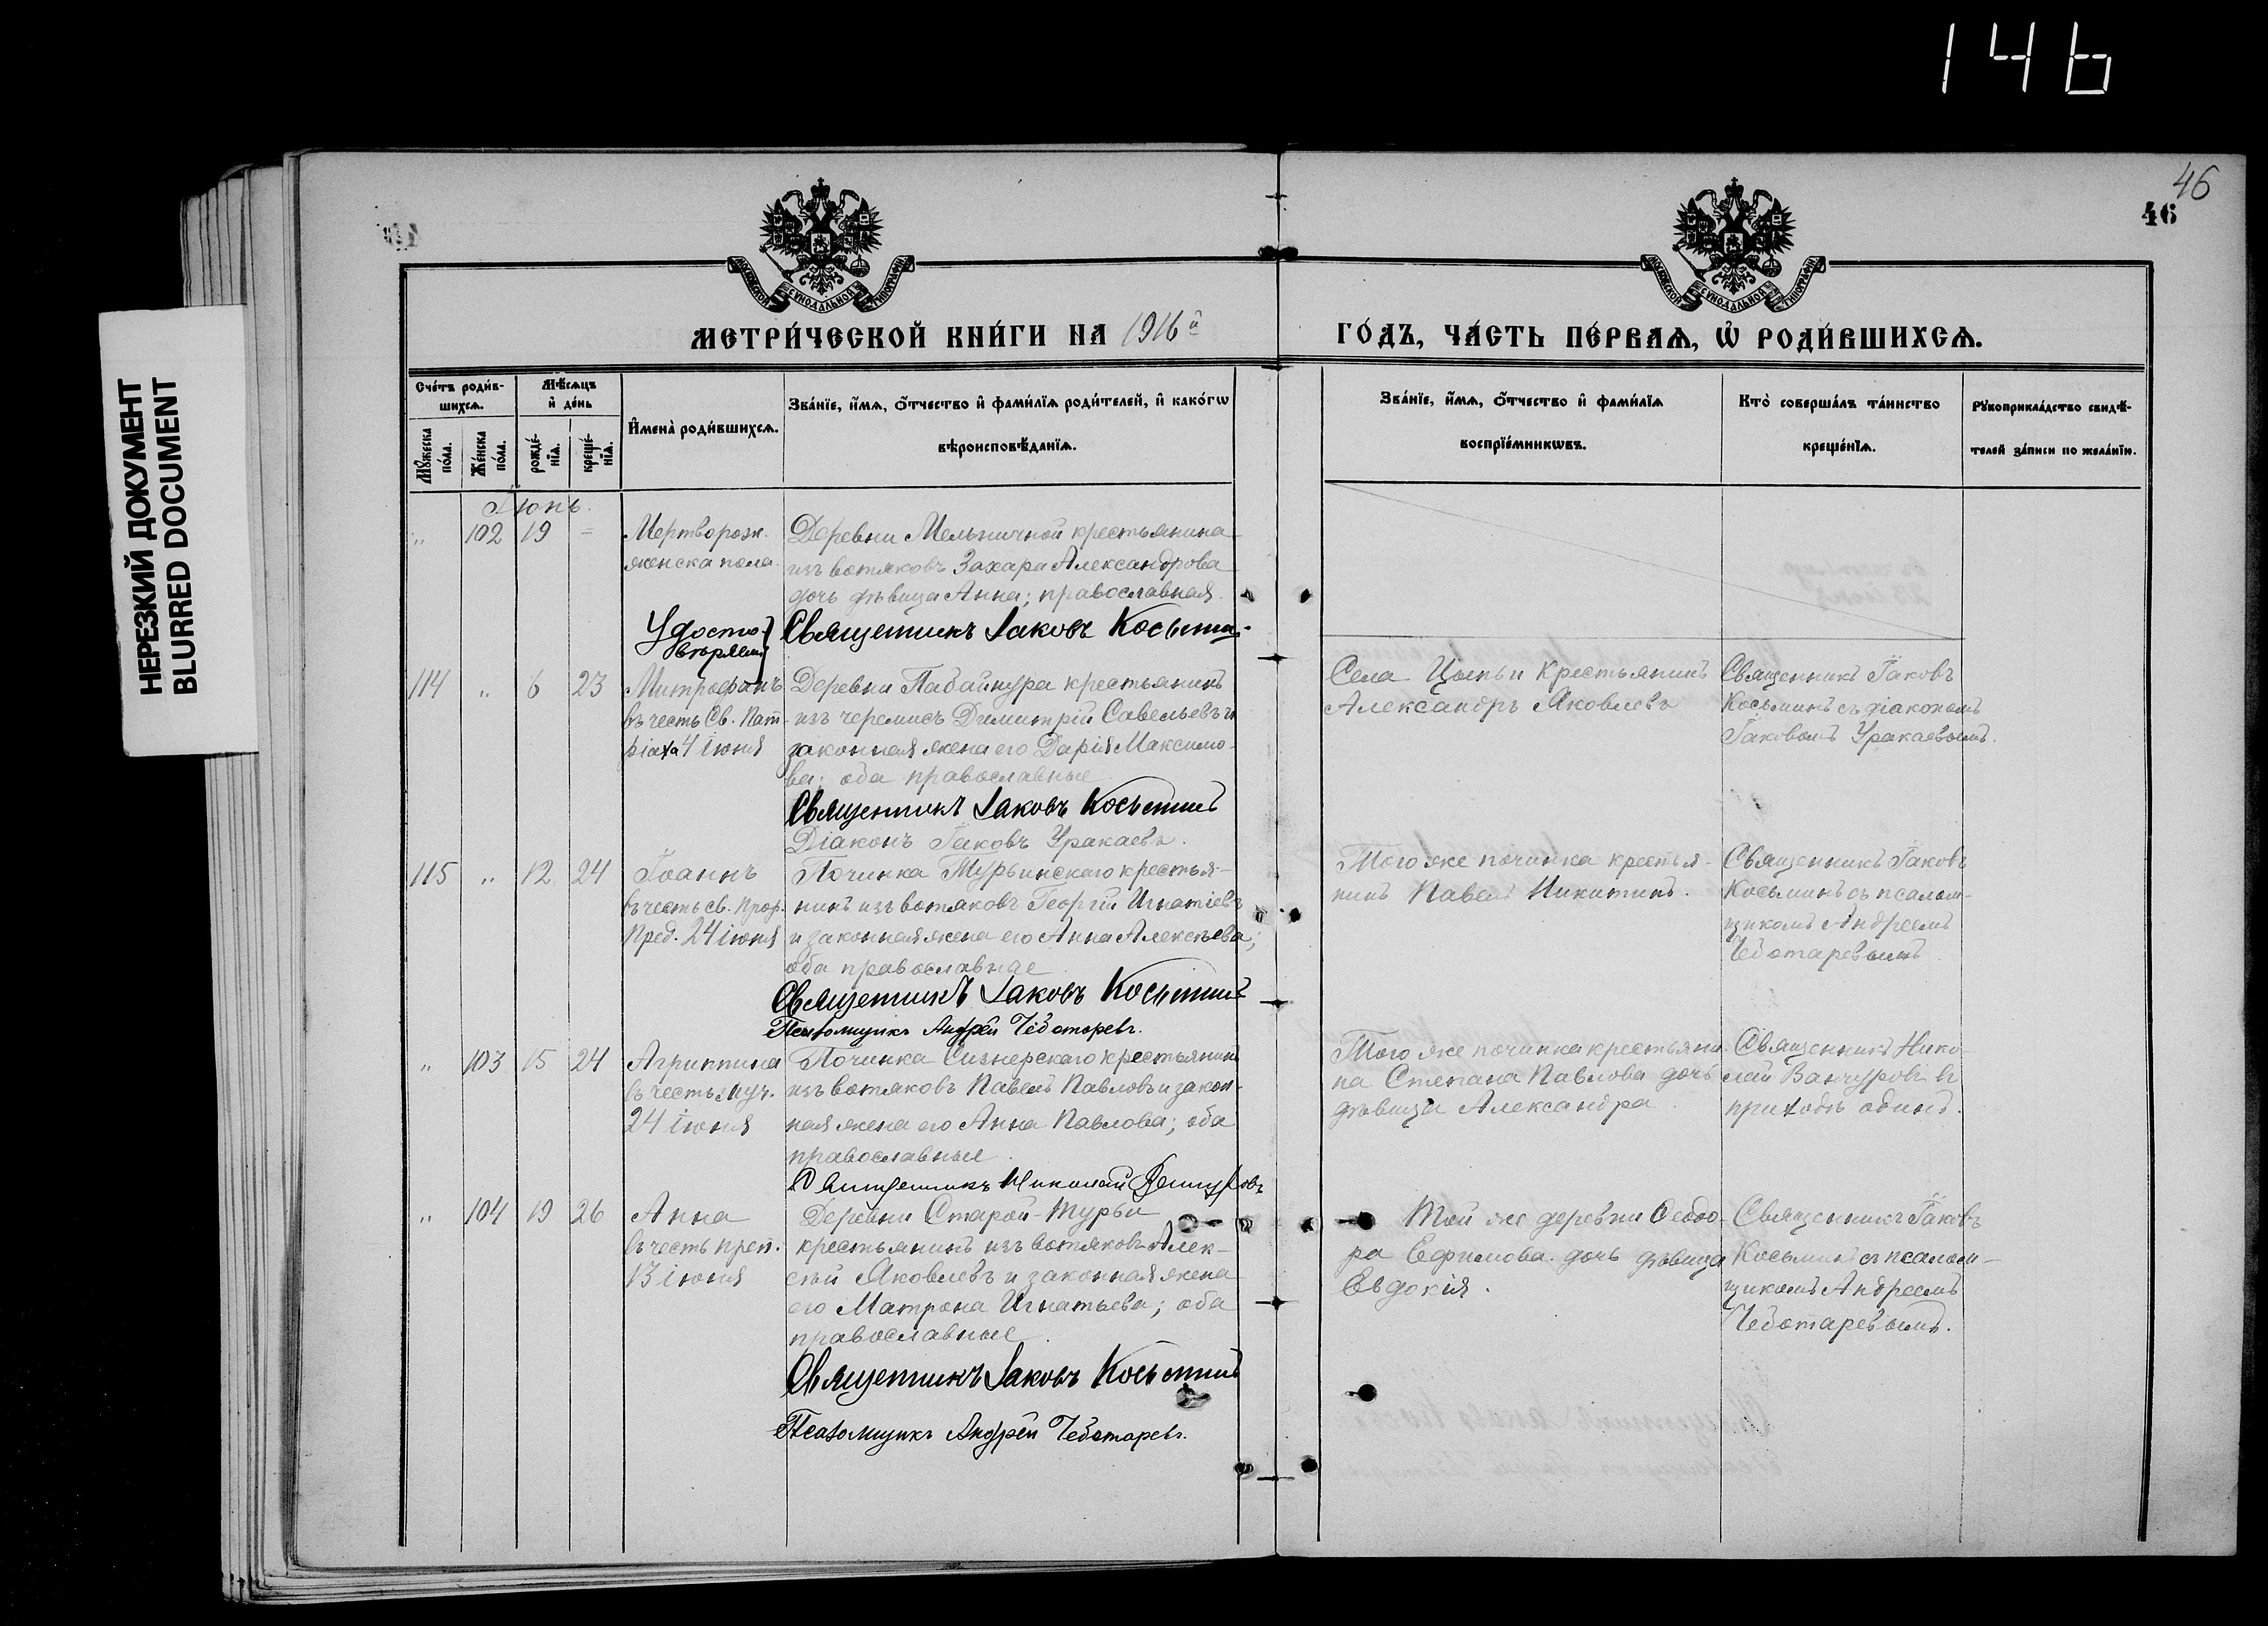 146
НЕРЕЗКИЙ ДОКУМЕНТ
BLURRED DOCUMENT
46
46
МОСКОВСКОЙ СѴНОДАЛЬНОЙ ТИПОГРАФІИ
МОСКОВСКОЙ СѴНОДАЛЬНОЙ ТИПОГРАФІИ
МЕТРИ́ЧЕСКОЙ КНИ́ГИ НА 1916й ГО́ДЪ, ЧА́СТЬ ПЕ́РВАѦ, Ѡ҆ РОДИ́ВШИХСѦ.
Сче́тъ роди́в-
шихсѧ.
Мꙋ́жеска по́ла.
Же́нска по́ла.
Мѣ́сѧцъ
и҆ де́нь
рожде́-
нїѧ.
креще́-
нїѧ.
И҆мена̀ роди́вшихсѧ.
Зва́нїе, и҆́мѧ, ѻ҆́тчество и҆ фами́лїѧ роди́телей, и҆ како́гѡ
вѣроисповѣ́данїѧ.
Зва́нїе, и҆́мѧ, ѻ҆́тчество и҆ фами́лїѧ
воспрїе́мникѡвъ.
Кто̀ соверша́лъ та́инство
креще́нїѧ.
Рꙋкоприкла́дство свидѣ́-
телей за́писи по жела́нїю.
Іюнь.
" 102 19 =
Мертворож.
женска пола.
Деревни Мельничной крестьянина
изъ вотяковъ Захара Александрова
дочь дѣвица Анна; православная.
Удосто-
вѣряем
Священникъ Іаковъ Косьмин
114 " 6 23
Митрофанъ
въ честь Св. Пат-
ріарха 4 іюня
Деревни Пабайнура крестьянинъ
изъ черемисъ Димитрій Савельевъ и
законная жена его Дарія Максимо-
ва; оба православные
Священникъ Іаковъ Косьминъ
Діаконъ Іаковъ Уракаевъ.
Села Цыпьи крестьянинъ
Александръ Яковлевъ
Священникъ Іаковъ
Косьминъ съ діакономъ
Іаковомъ Уракаевымъ.
115 " 12 24
Іоаннъ
въ честь св. прор.
Пред. 24 іюня
Починка Турьинскаго крестья-
нинъ изъ вотяковъ Георгій Игнатіевъ
и законная жена его Анна Алексѣева;
оба православные
Священникъ Іаковъ Косьминъ
Псаломщикъ Андрей Чеботаревъ.
Того же починка крестья-
нинъ Павелъ Никитинъ.
Священникъ Іаковъ
Косьминъ съ псалом-
щикомъ Андреемъ
Чеботаревымъ
" 103 15 24
Агриппина
въ честь муч.
24 іюня
Починка Сизнерскаго крестьянинъ
изъ вотяковъ Павелъ Павловъ и закон-
ная жена его Анна Павлова; оба
православные.
Священникъ Николай Ванчуровъ
Того же починка крестьяни-
на Степана Павлова дочь
дѣвица Александра
Священникъ Нико-
лай Ванчуровъ въ
приходѣ одинъ.
" 104 19 26
Анна
въ честь преп.
13 іюня
Деревни Старой-Турьи
крестьянинъ изъ вотяковъ Алек-
сѣй Яковлевъ и законная жена
его Матрона Игнатьева; оба
православные.
Священникъ Іаковъ Косьминъ
Псаломщикъ Андрей Чеботаревъ.
Той же деревни Ѳеодо-
ра Ефимова дочь дѣвица
Евдокія.
Священникъ Іаковъ
Косьминъ съ псалом-
щикомъ Андреемъ
Чеботаревымъ.